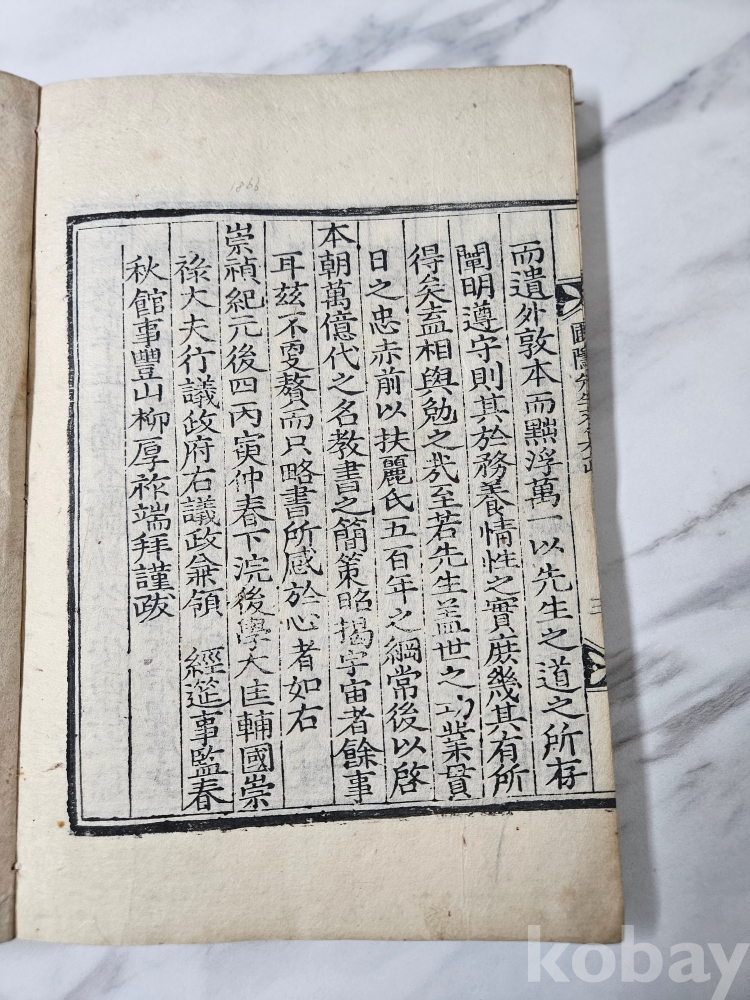 而遺外敦本而黜浮萬一以先生之道之所存
闡明遵守則其於務養情性之實庶幾其有所
得矣盍相與勉之哉至若先生盖世之功業貫
日之忠赤前以扶麗氏五百年之綱常後以啓
本朝萬億代之名教書之簡策昭揭宇宙者餘事
耳玆不更贅而只略書所感於心者如右
崇禎紀元後四丙寅仲春下浣後學大匡輔國崇
祿大夫行議政府右議政兼領 經筵事監春
秋館事豐山柳厚祚端拜謹跋
圃隱先生
三
1866
kobay